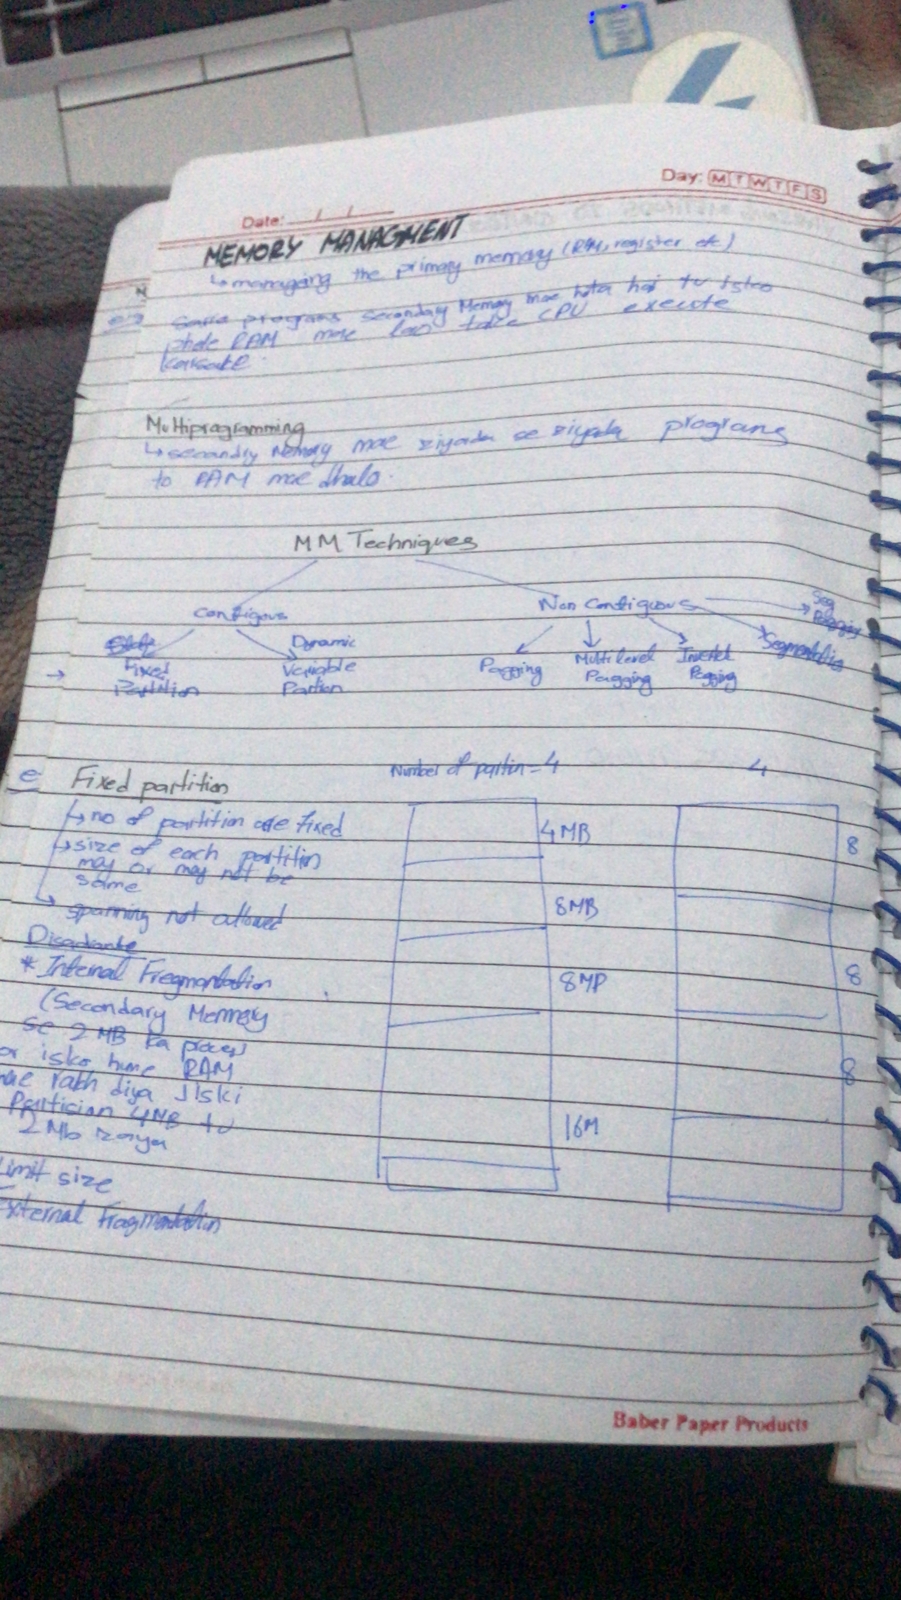 Day: M T W T F S
Date: / /
MEMORY MANAGMENT
↳ managing the primary memory (RAM, register etc)
Sare programs secondary Memory mae hota hai tu isko
phele RAM mae lao take CPU execute
karsake.
Multiprogramming
↳ secondry Memory mae ziyada se ziyada programs
to RAM mae dhalo.
MM Techniques
Contigous
Non Contiguous
Seg
Pagging
Fixed
Partition
Dynamic
Variable
Partion
Pagging
Multilevel
Pagging
Inverted
Pagging
Segmentation
Fixed partition
Number of partin = 4
4
↳ no of partition are fixed
4MB
8
↳ size of each partition
may or may not be
same
↳ spanning not allowed
8MB
* Internal Fregmentation
8MP
8
(Secondary Memory
se 2 MB ka process
or isko hume RAM
mae rakh diya Jiski
8
Partician 4MB tu
2 Mb zaya
16M
Limit size
External Fragmentation
Baber Paper Products